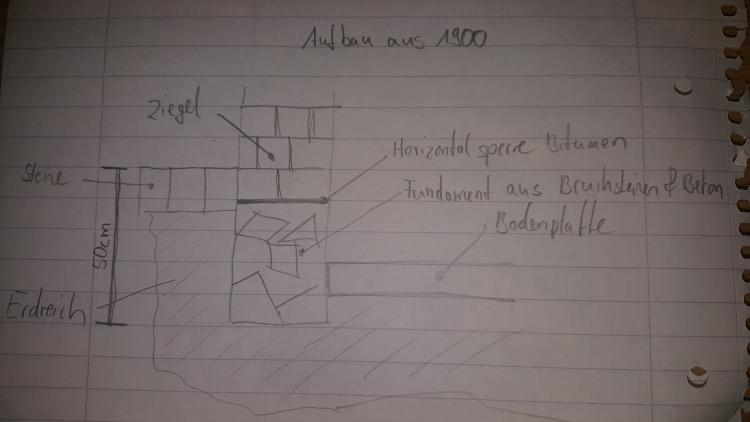 Aufbau aus 1900
Ziegel
Horizontal sperre Bitumen
Steine
Fundament aus Bruchsteinen & Beton
Bodenplatte
50cm
Erdreich